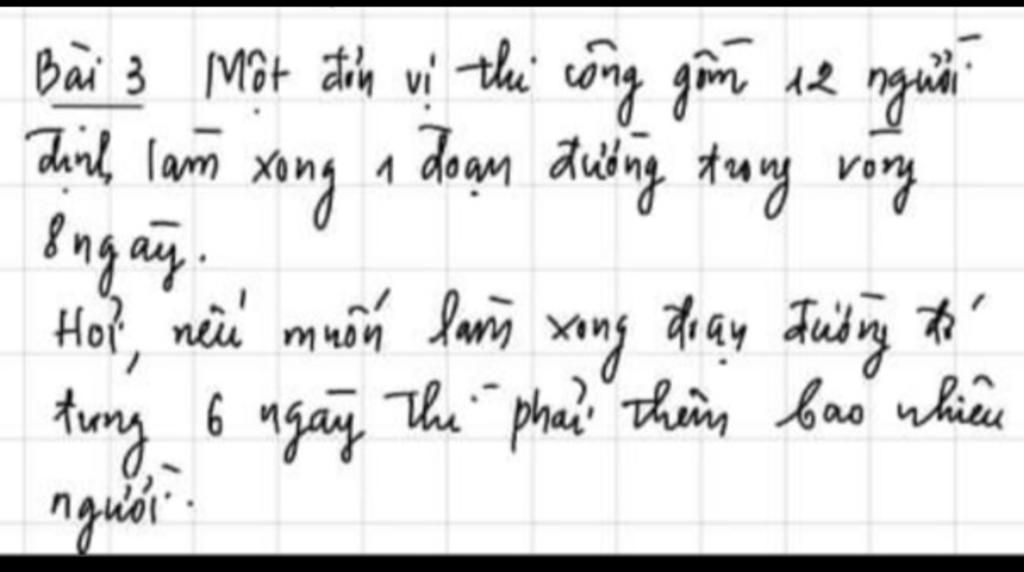 Bài 3 Một đơn vị thi công gồm 12 người
định làm xong 1 đoạn đường trong vòng
8 ngày.
Hỏi, nếu muốn làm xong đoạn đường đó
trong 6 ngày thì phải thêm bao nhiêu
người.